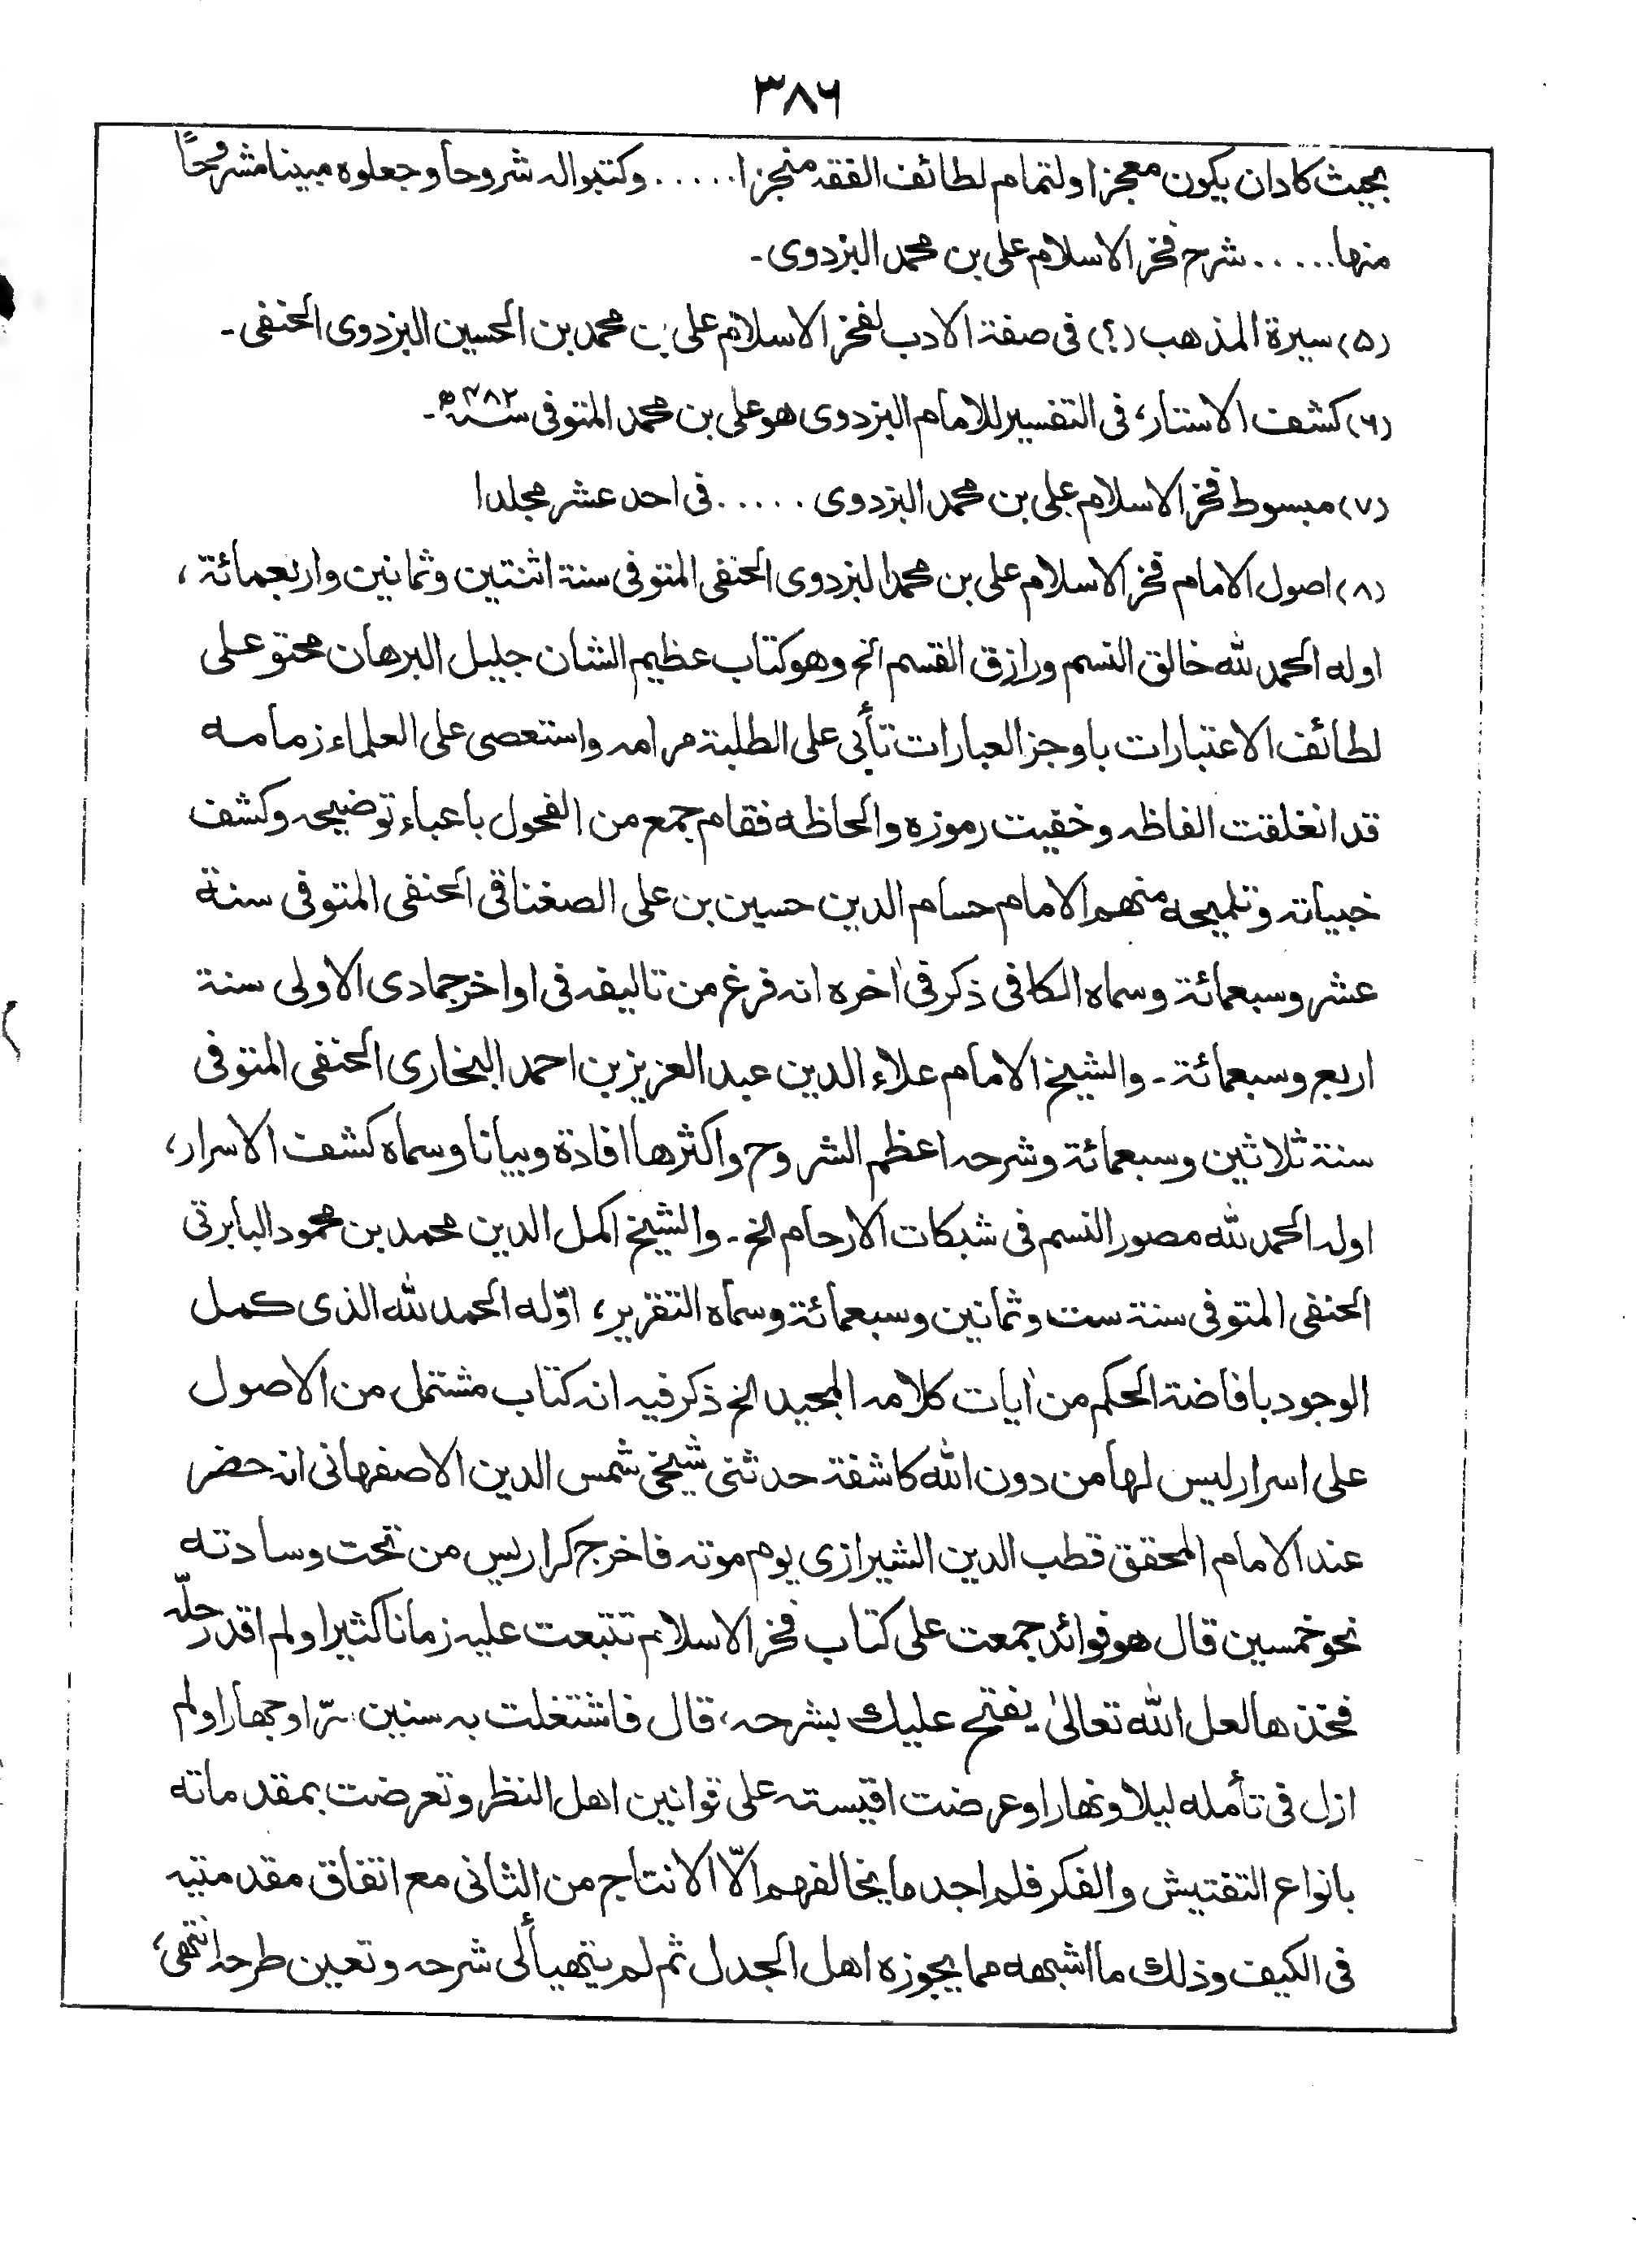 ٣٨٦
بحيث كادان يكون معجزا ولتمام لطائف الفقه منجزا..... وكتبواله شروحا وجعلوه مبينا مشروحًا
منها..... شرح فخر الاسلام على بن محمد البزدوى۔
(۵) سيرة المذهب (؟) فى صفة الادب لفخر الاسلام على بن محمد بن الحسين البزدوى الحنفى۔
(٦) كشف الاستار، فى التفسير للامام البزدوى هو على بن محمد المتوفى سنة ۴۸۲ھ۔
(٧) مبسوط فخر الاسلام على بن محمد البزدوى ..... فى احد عشر مجلدا
(٨) اصول الامام فخر الاسلام على بن محمد البزدوى الحنفى المتوفى سنة اثنتين وثمانين واربعمائة،
اوله الحمد لله خالق النسم ورازق القسم الخ وهو كتاب عظيم الشان جليل البرهان محتو على
لطائف الاعتبارات باوجز العبارات تأبى على الطلبة مرامه واستعصى على العلماء زمامه
قد انغلقت الفاظه وخفيت رموزه والحاظه فقام جمع من الفحول باعباء توضيحه وكشف
خبياته وتلميحه منهم الامام حسام الدين حسين بن على الصغناقى الحنفى المتوفى سنة
عشر وسبعمائة وسماه الكافى ذكر فى اٰخره انه فرغ من تاليفه فى اواخر جمادى الاولى سنة
اربع وسبعمائة۔ والشيخ الامام علاء الدين عبد العزيز بن احمد البخارى الحنفى المتوفى
سنة ثلاثين وسبعمائة وشرحه اعظم الشروح واكثرها افادة وبيانا وسماه كشف الاسرار،
اوله الحمد لله مصور النسم فى شبكات الارحام الخ۔ والشيخ اكمل الدين محمد بن محمود البابرتى
الحنفى المتوفى سنة ست وثمانين وسبعمائة وسماه التقرير، اوّله الحمد لله الذى كمل
الوجود بافاضة الحكم من اٰيات كلامه المجيد الخ ذكر فيه انه كتاب مشتمل من الاصول
على اسرار ليس لها من دون الله كاشفة حدثنى شيخى شمس الدين الاصفهانى انه حضر
عند الامام المحقق قطب الدين الشيرازى يوم موته فاخرج كراريس من تحت وسادته
نحو خمسين قال هو فوائد جمعت على كتاب فخر الاسلام تتبعت عليه زمانا كثيرا ولم اقدر حلّه
فخذها لعل الله تعالىٰ يفتح عليك بشرحه، قال فاشتغلت به سنين سرّا وجهارا ولم
ازل فى تأمله ليلا ونهارا وعرضت اقيسته على قوانين اهل النظر وتعرضت بمقدماته
بانواع التفتيش والفكر فلم اجد ما يخالفهم الّا الانتاج من الثانى مع اتفاق مقدمتيه
فى الكيف وذلك ما اشبهه مما يجوزه اهل الجدل ثم لم يتهيأ لى شرحه وتعين طرحه انتهى،